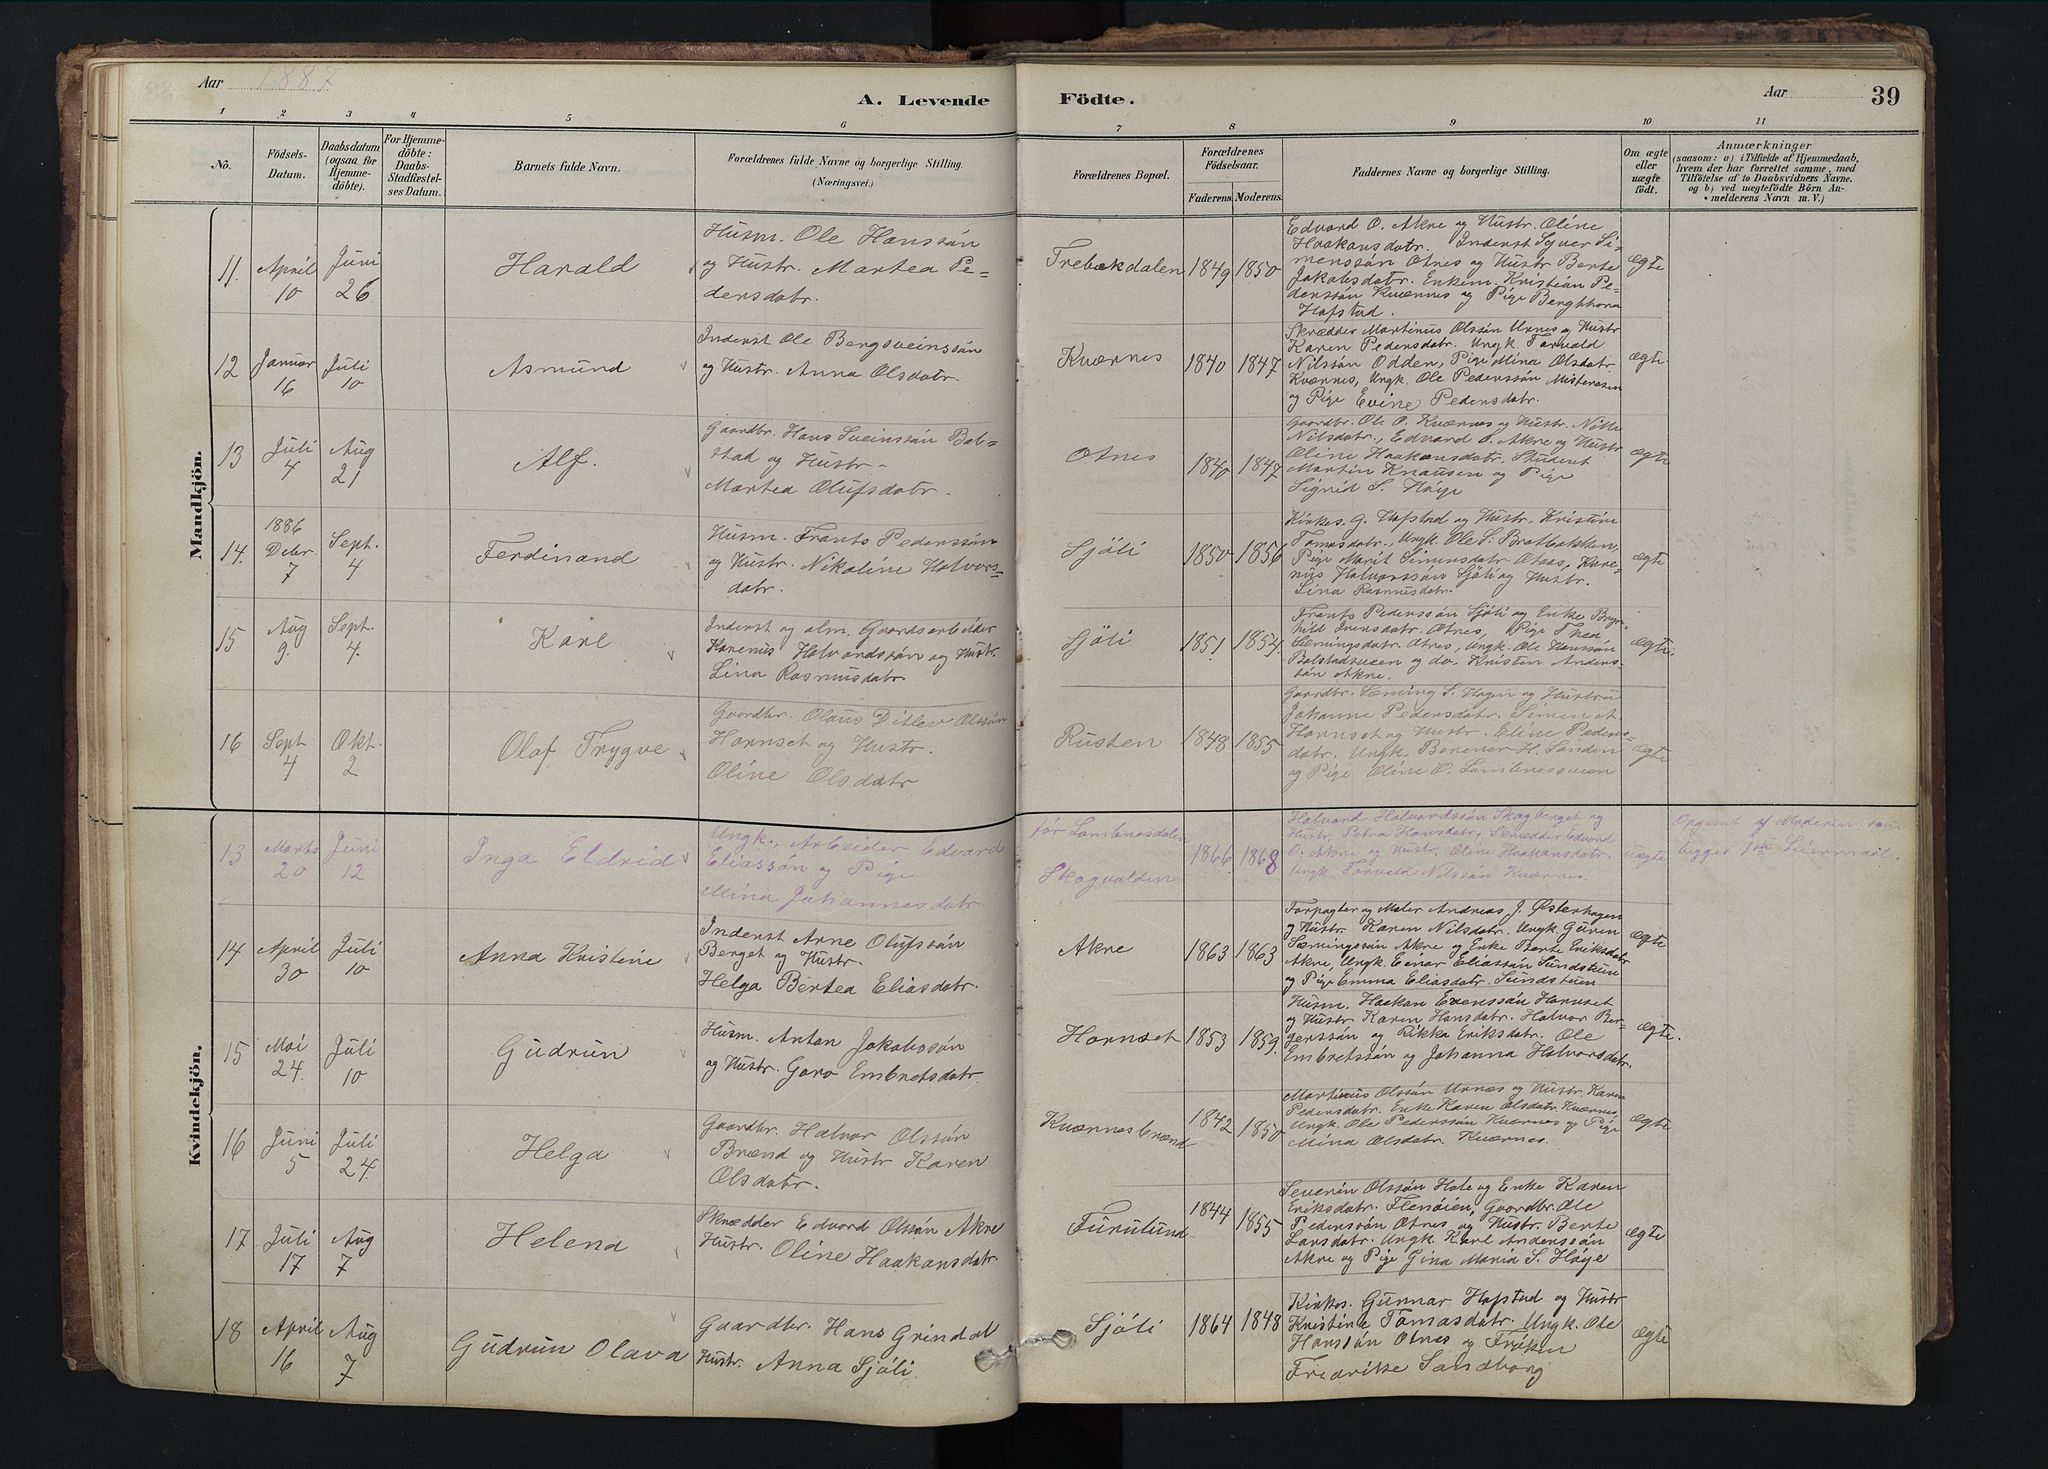 Aar 1887
A. Levende Födte.
Aar
39
1 2 3 4 5 6 7 8 9 10 11
No.
Födsels-
Datum.
Daabsdatum
(ogsaa for
Hjemme-
döbte).
For Hjemme-
döbte:
Daabs-
Stadfæstel-
ses Datum.
Barnets fulde Navn.
Forældrenes fulde Navne og borgerlige Stilling.
(Næringsvei.)
Forældrenes Bopæl.
Forældrenes
Födselsaar.
Faderens. Moderens.
Faddernes Navne og borgerlige Stilling.
Om ægte
eller
uægte
födt.
Anmærkninger
(saasom: a) i Tilfælde af Hjemmedaab,
hvem der har forrettet samme, med
Tilföielse af to Daabsvidners Navne.
og b) ved uægtefödte Börn An-
melderens Navn m. V.)
Mandkjön.
11. April 10
Juni 26
Harald
Husm. Ole Hanssön
og Hustr. Martea Pe-
dersdatr.
Trebækdalen
1849 1850
Edvard O. Akre og Hustr. Oline
Haakansdatr. Inderst Syver Si-
menssön Otnes og Hustr Berte
Jakobsdatr. Enkem. Kristian Pe-
derssön Kværnes og Pige Bergthora
Hafstad.
ægte
12 Januar 16
Juli 10
Asmund
Inderst Ole Bergsveinssön
og Hustr. Anna Olsdatr.
Kværnes
1840 1847
Skrædder Martinus Olssön Urnes og Hustr
Karen Pedersdatr. Ungk. Torvald
Nilssön Odden, Pige Mina Olsdatr.
Kværnes, Ungk. Ole Pederssön Misterosen
og Pige Evine Pedersdatr.
ægte
13 Juli 4
Aug 21
Alf.
Gaardbr. Hans Sveinssön Bol-
stad og Hustr-
Martea Olufsdatr.
Otnes
1840 1847
Gaardbr. Ole P. Kværnes og Hustr. Nille
Nilsdatr., Edvard O. Akre og Hustr
Oline Haakansdatr. Student
Martin Knausen og Pige
Sigrid S. Höye
ægte
14. 1886 Debr 7
Sept. 4
Ferdinand
Husm. Frants Pederssön
og Hustr. Nikoline Halvors-
datr.
Sjöli
1850 1856
Kirkes. G. Hafstad og Hustr. Kristine
Tomasdatr., Ungk. Ole S. Bratbakken,
Pige Marit Simensdatr Otnes, Kare-
nus Halvorssön Sjöli og Hustr.
Lina Rasmusdatr.
ægte
15 Aug 9.
Sept. 4.
Karl
Inderst og alm. Gaardsarbeider
Karenus Halvordssön og Hustr.
Lina Rasmusdatr.
Sjöli
1851. 1854.
Frants Pederssön Sjöli og Enke Bryn-
hild Iversdatr. Otnes, Pige Thea
Sæmingsdatr. Otnes, Ungk. Ole Hanssön
Bolstadsveen og do. Kristen Anders-
sön Akre.
ægte.
16 Sept 4
Okt. 2
Olaf Trygve
Gaardbr. Olaus Ditlev Olssön
Hornset og Hustr.
Oline Olsdatr
Rusten
1848 1855
Gaardbr. Sæming S. Hagen og Hustru
Johanne Pedersdatr. Simen et
Hornset og Hustr. Eline Peders-
datr. Ungk. Berener H. Sanden
og Pige Oline O. Lombnessveen
ægte
Kvindekjön.
13 Marts 20
Juni 12
Inga Eldrid
Ungk., Arbeider Edvard
Eliassön og Pige
Mina Johannesdatr.
for Lombnesdalen
Skogvolden
1866. 1868
Halvard Halvardssön Skogberget og
Hustr. Petra Hansdatr, Skrædder Edvard
O. Akre og Hustr. Oline Haakansdatr.
Ungk. Torvald Nilssön Kværnes.
uægte
Opgivet af Moderen som
begges 1ste Leiermaal.
14 April 30
Juli 10
Anna Kristine
Inderst Arne Olufssön
Berget og Hustr.
Helga Bertea Eliasdatr.
Akre
1863 1863
Forpagter og Maler Andreas J. Österhagen
og Hustr. Karen Nilsdatr. Ungk. Guren
Sæmingssön Akre og Enke Berte Eriksdatr
Akre, Ungk. Einar Eliassön Sundstuen
og Pige Emma Eliasdatr. Sundstuen
ægte
15 Mai 24.
Juli 10
Gudrun
Husm. Anton Jakobssön
og Hustr. Goro Embretsdatr.
Hornset
1853 1859.
Husm. Haakan Evenssön Hornset
og Hustr. Karen Hansdatr. Halvor Ber-
gerssön og Rikka Eriksdatr. Ole
Embretssön og Johanna Halvorsdatr.
ægte.
16 Juni 5
Juli 24.
Helga
Gaardbr. Halvor Olssön
Brænd og Hustr Karen
Olsdatr.
Kværnesbrænd
1842 1850
Martinus Olssön Urnæs og Hustr. Karen
Pedersdatr. Enke Karen Olsdatr. Kværnes,
Ungk. Ole Pederssön Kværnes og Pige
Mina Olsdatr. Kværnes.
ægte
17 Juli 17
Aug 7
Helena
Skrædder Edvard Olssön Akre
Hustr. Oline Haakansdatr.
Furulund
1844 1855
Severin Olssön Hole og Enke Karen
Eriksdatr. Flenöien, Gaardbr. Ole
Pederssön Otnes og Hustr. Berte
Larsdatr. Ungk. Karl Anderssön
Akre og Pige Gina Maria S. Höye
ægte
18 April 16
Aug 7
Gudrun Olava
Gaardbr. Hans Grindal
Hustr. Anna Sjöli.
Sjöli
1864 1848
Kirkes. Gunnar Hafstad og Hustr
Kristine Tomasdatr. Ungk. Ole
Hanssön Otnes og Fröken
Fredrikke Sandborg
ægte